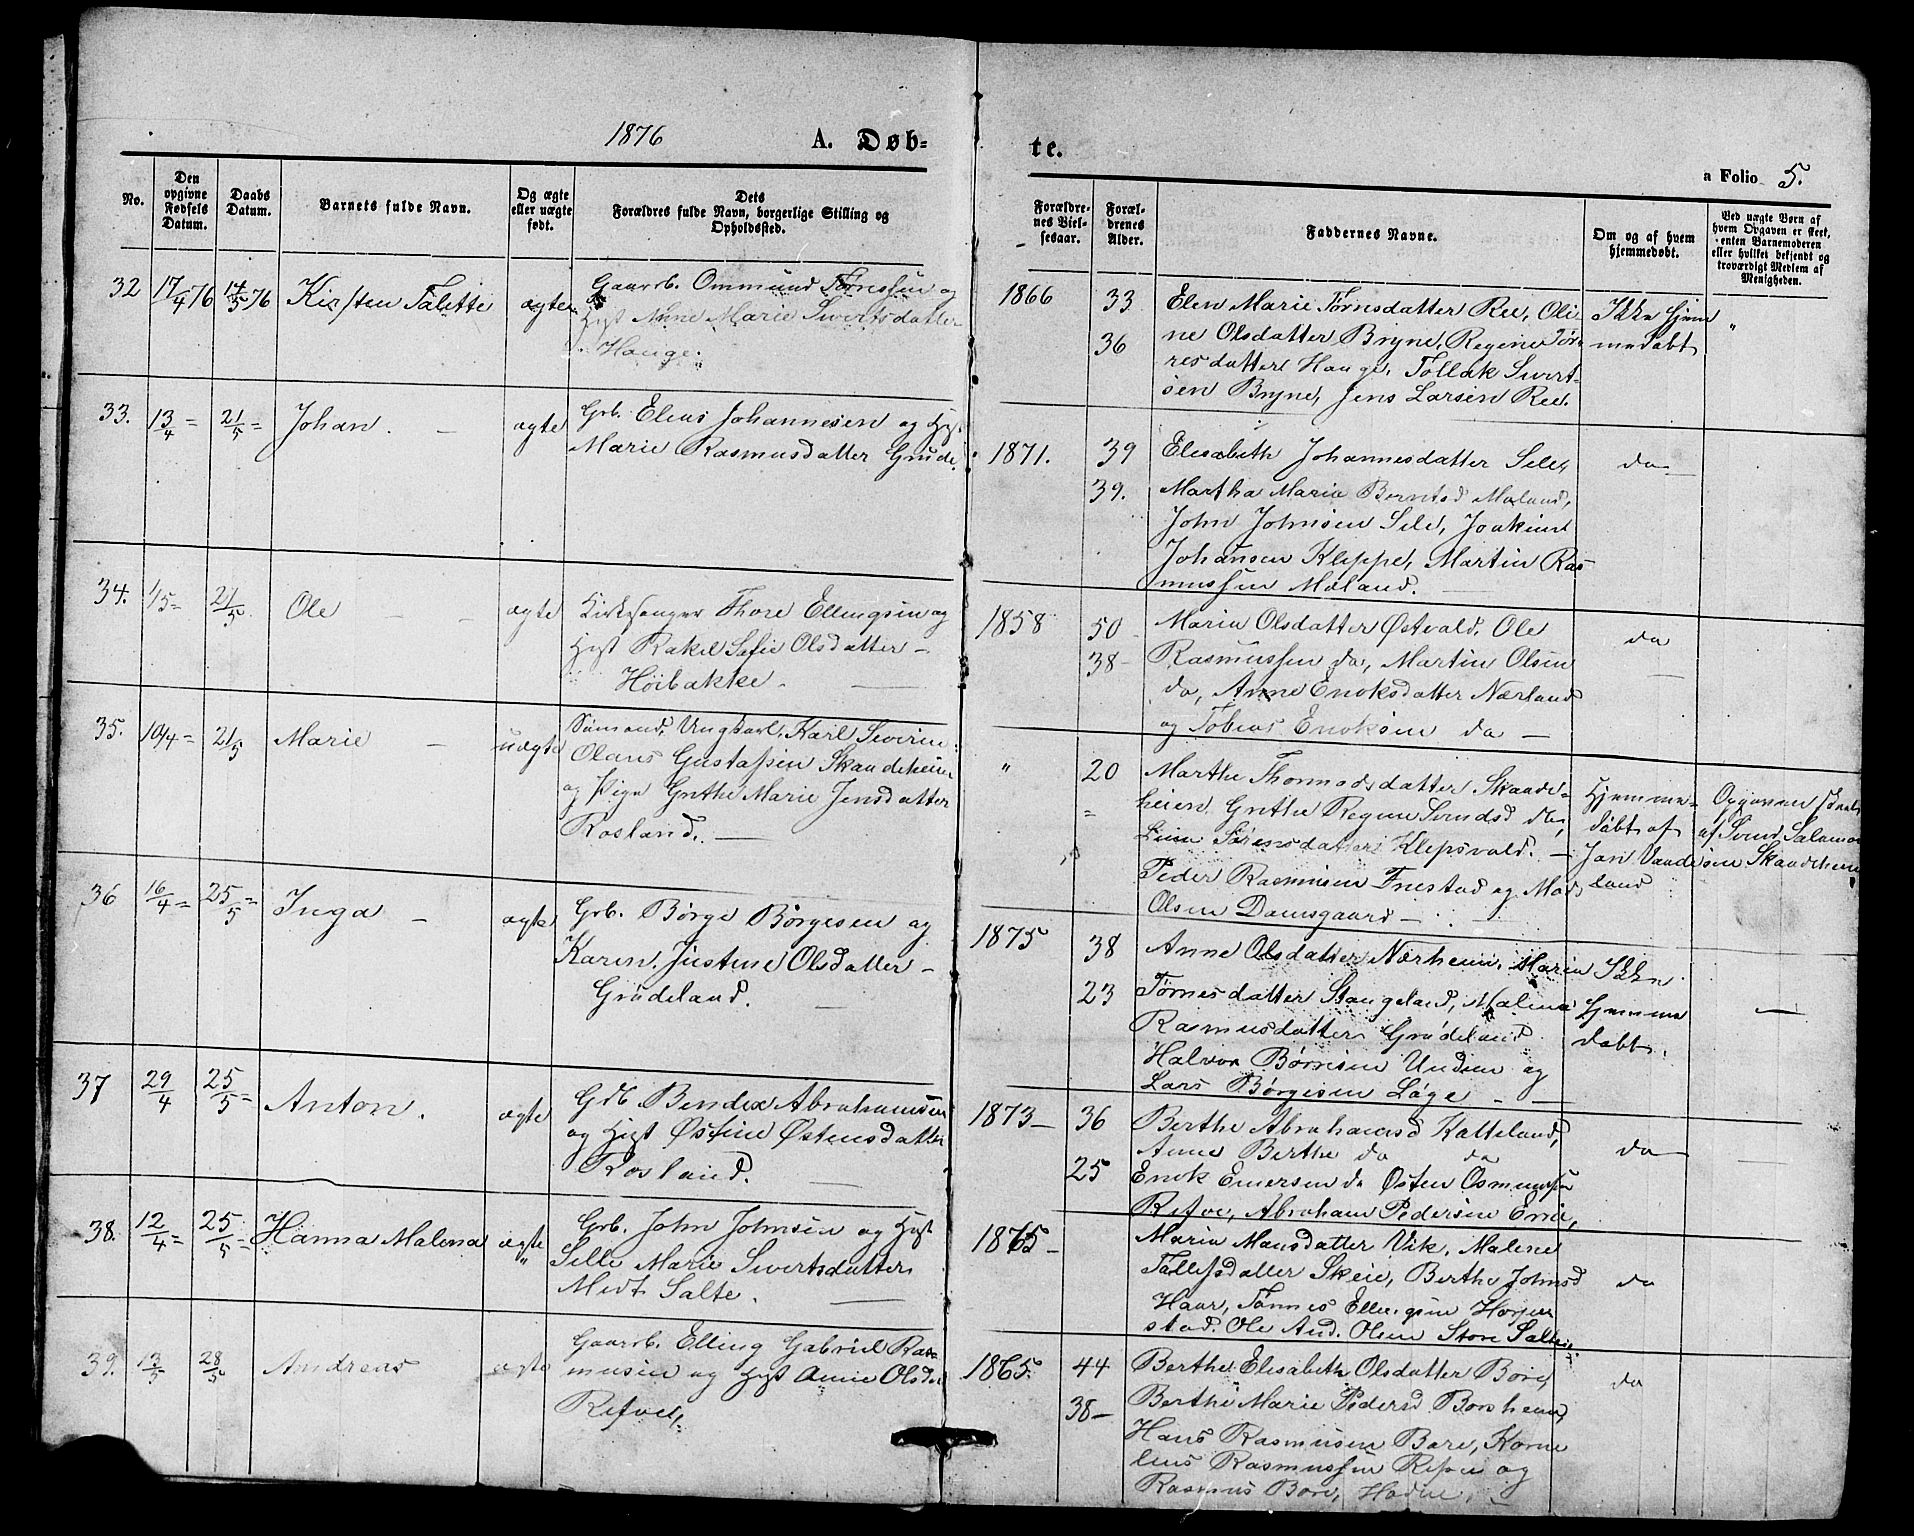 1876
A. Døb-
te.
a Folio 5.
No.
Den opgivne Fødsels Datum.
Daabs Datum.
Barnets fulde Navn.
Og ægte eller uægte født.
Dets Forældres fulde Navn, borgerlige Stilling og Opholdssted.
Forældrenes Vielsesaar.
Forældrenes Alder.
Faddernes Navne.
Om og af hvem hjemmedøbt.
Ved uægte Børn af hvem Opgaven er skeet, enten Barnemoderen eller hvilket bekjendt og troværdigt Medlem af Menigheden.
32 17/4 76 14/5 76 Kirsten Talette ægte
Gaardb. Ommund Tørressen og
Hust Anne Marie Sivertsdatter
Hauge.
1866 33
36
Elen Marie Tørnsdatter Ree, Oli-
ne Olsdatter Bryne, Regine Tør-
resdatter Hauge, Tollak Sivert-
sen Bryne, Jens Larsen Ree.
Ikke hjem
medøbt
"
33. 13/4 = 21/5 = Johan. – ægte
Grb. Elias Johannesen og Hst.
Marie Rasmusdatter Grude.
1871. 39
39.
Elisabeth Johannesdatter Sele,
Martha Maria Berntsd Maland,
John Johnsen Sele, Joakim
Johansen Kleppe, Martin Ras-
mussen Maland.
do
34. 1/5 = 21/5. Ole – ægte
Kirkesanger Thore Ellingsen og
Hust Rakel Sofie Olsdatter –
Høibakke.
1858 50
38 –
Maria Olsdatter Østvald, Ole
Rasmussen do, Martin Olsen
do, Anne Enoksdatter Nærland
og Tobias Enoksen do –
do
35. 10/4 = 21/5 Marie – uægte
Sømand, Ungkarl, Karl Sverin
Olaus Gustafsen Skandeheien
og Pige Grethe Marie Jensdatter
Rosland.
" 20
=
Marthe Thomasdatter Skaade-
heien, Grethe Regine Svendsd do,
Lina Sørensdatter Klepsvald. –
Peder Rasmusen Tnestad og Mads
Olsen Damsgaard –
Hjemme-
døbt af
Jan Vaade
land
Opgaven skeet
af Svend Salamon
sen Skandeheien
36 16/4 = 25/5 = Inga – ægte
Grb. Børge Børgesen og
Karen Justine Olsdatter –
Grudeland.
1875 38
23
Anne Olsdatter Nærheim, Maria
Tørnesdatter Stangeland, Malena
Rasmusdatter Grudeland
Halvor Børresen Undem og
Lars Børgesen Løge –
Ikke
hjemme
døbt.
37 29/4 25/5 = Anton. ægte
Grb Bendix Abrahamsen
og Hust Østine Østensdatter
Rosland.
1873 – 36
25
Berthe Abrahamsd Katteland,
Anne Berthe do do
Enok Enersen do Østen Osmundsen
Refve, Abraham Pedersen Erik,
do
38. 12/4 = 25/5 = Hanna Malena ægte
Grb. John Johnsen og Hust
Sille Marie Sivertsdatter
Midt Salte.
1865 –
Maria Mansdatter Vik, Malene
Tollefsdatter Skeie, Berthe Johnsd
Haar, Tønnes Ellingsen Horpe
stad. Ole And. Olsen Store Salte.
do
39. 13/5 28/5 Andreas ægte
Gaardb. Elling Gabriel Ras-
musen og Hust Anne Olsd
Refve.
1865. 44
38 –
Berthe Elisabeth Olsdatter Bore,
Berthe Marie Pedersd Borsheim,
Hans Rasmusen Bore, Korne
lius Rasmussen Refve og
Rasmus Bore, Hodne,
do